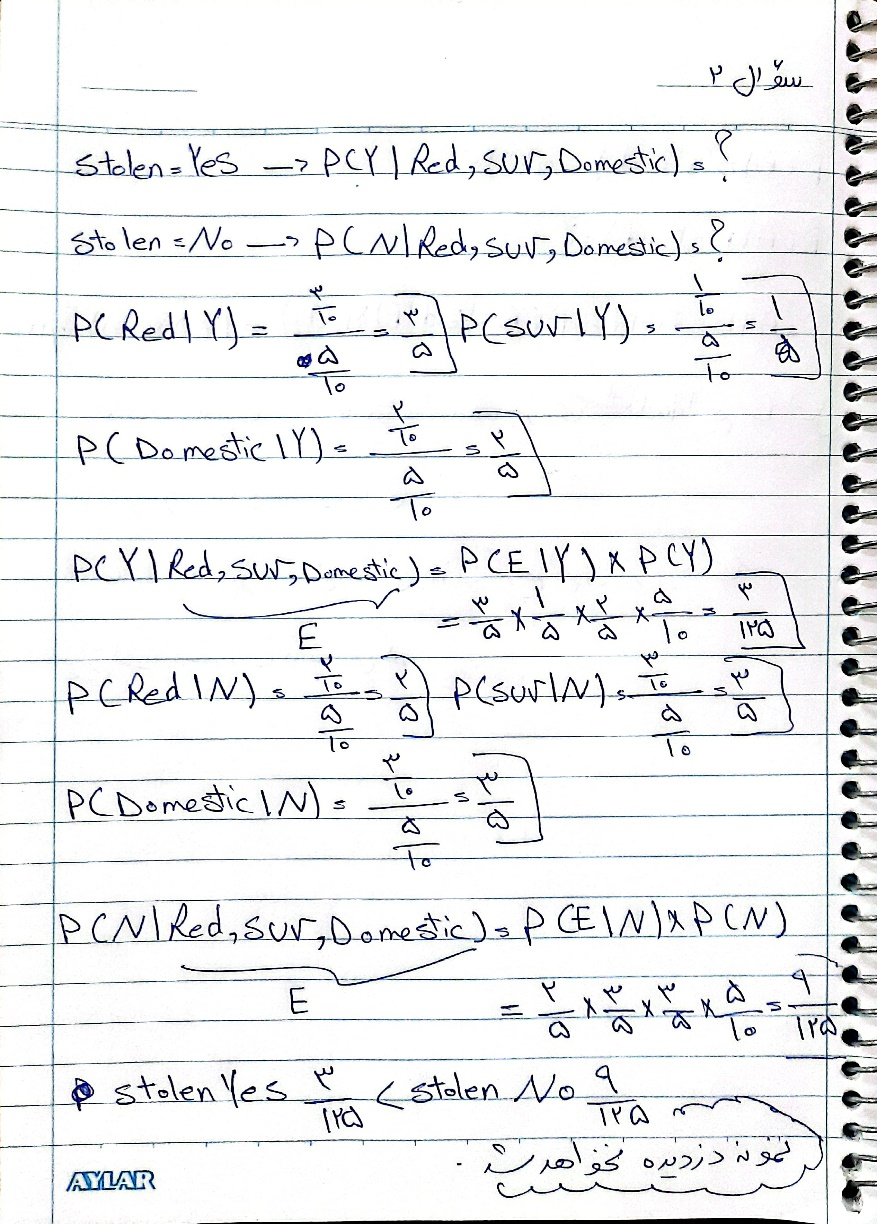 سؤال ۲
Stolen = Yes → P(Y | Red, SUV, Domestic) = ?
Stolen = No → P(N | Red, SUV, Domestic) = ?
P(Red | Y) = (۳/۱۰)/(۵/۱۰) = ۳/۵ P(SUV | Y) = (۱/۱۰)/(۵/۱۰) = ۱/۵
P(Domestic | Y) = (۲/۱۰)/(۵/۱۰) = ۲/۵
P(Y | Red, SUV, Domestic) = P(E | Y) × P(Y)
E = ۳/۵ × ۱/۵ × ۲/۵ × ۵/۱۰ = ۳/۱۲۵
P(Red | N) = (۲/۱۰)/(۵/۱۰) = ۲/۵ P(SUV | N) = (۳/۱۰)/(۵/۱۰) = ۳/۵
P(Domestic | N) = (۳/۱۰)/(۵/۱۰) = ۳/۵
P(N | Red, SUV, Domestic) = P(E | N) × P(N)
E = ۲/۵ × ۳/۵ × ۳/۵ × ۵/۱۰ = ۹/۱۲۵
stolen Yes ۳/۱۲۵ < stolen No ۹/۱۲۵
نمونه دزدیده نخواهد شد.
AYLAR